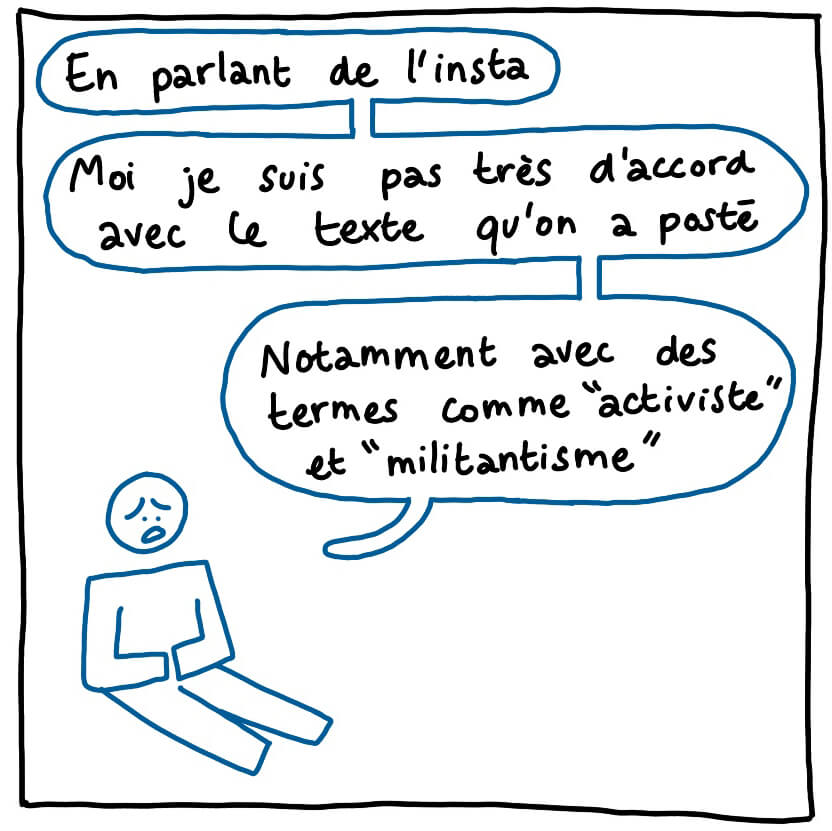 En parlant de l'insta
Moi je suis pas très d'accord
avec le texte qu'on a posté
Notamment avec des
termes comme "activiste"
et "militantisme"